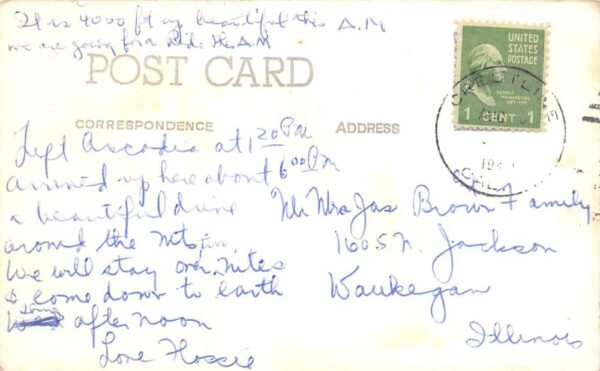 It is 4000 ft up beautiful this A.M
we are going for a Ride this A.M
POST CARD
CORRESPONDENCE
ADDRESS
UNITED
STATES
POSTAGE
GEORGE
WASHINGTON
1 CENT 1
CRESTLINE
AUG
194
CALIF
Left Arcadia at 1 20 P m
arrived up here about 6 00 P m
a beautiful drive
around the Mts
We will stay over nites
& come down to earth
afternoon
Love Flossie
Mr Mrs Jas Brown & Family
1605 N. Jackson
Waukegan
Illinois